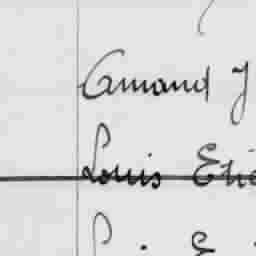 Amand J
Louis Etie